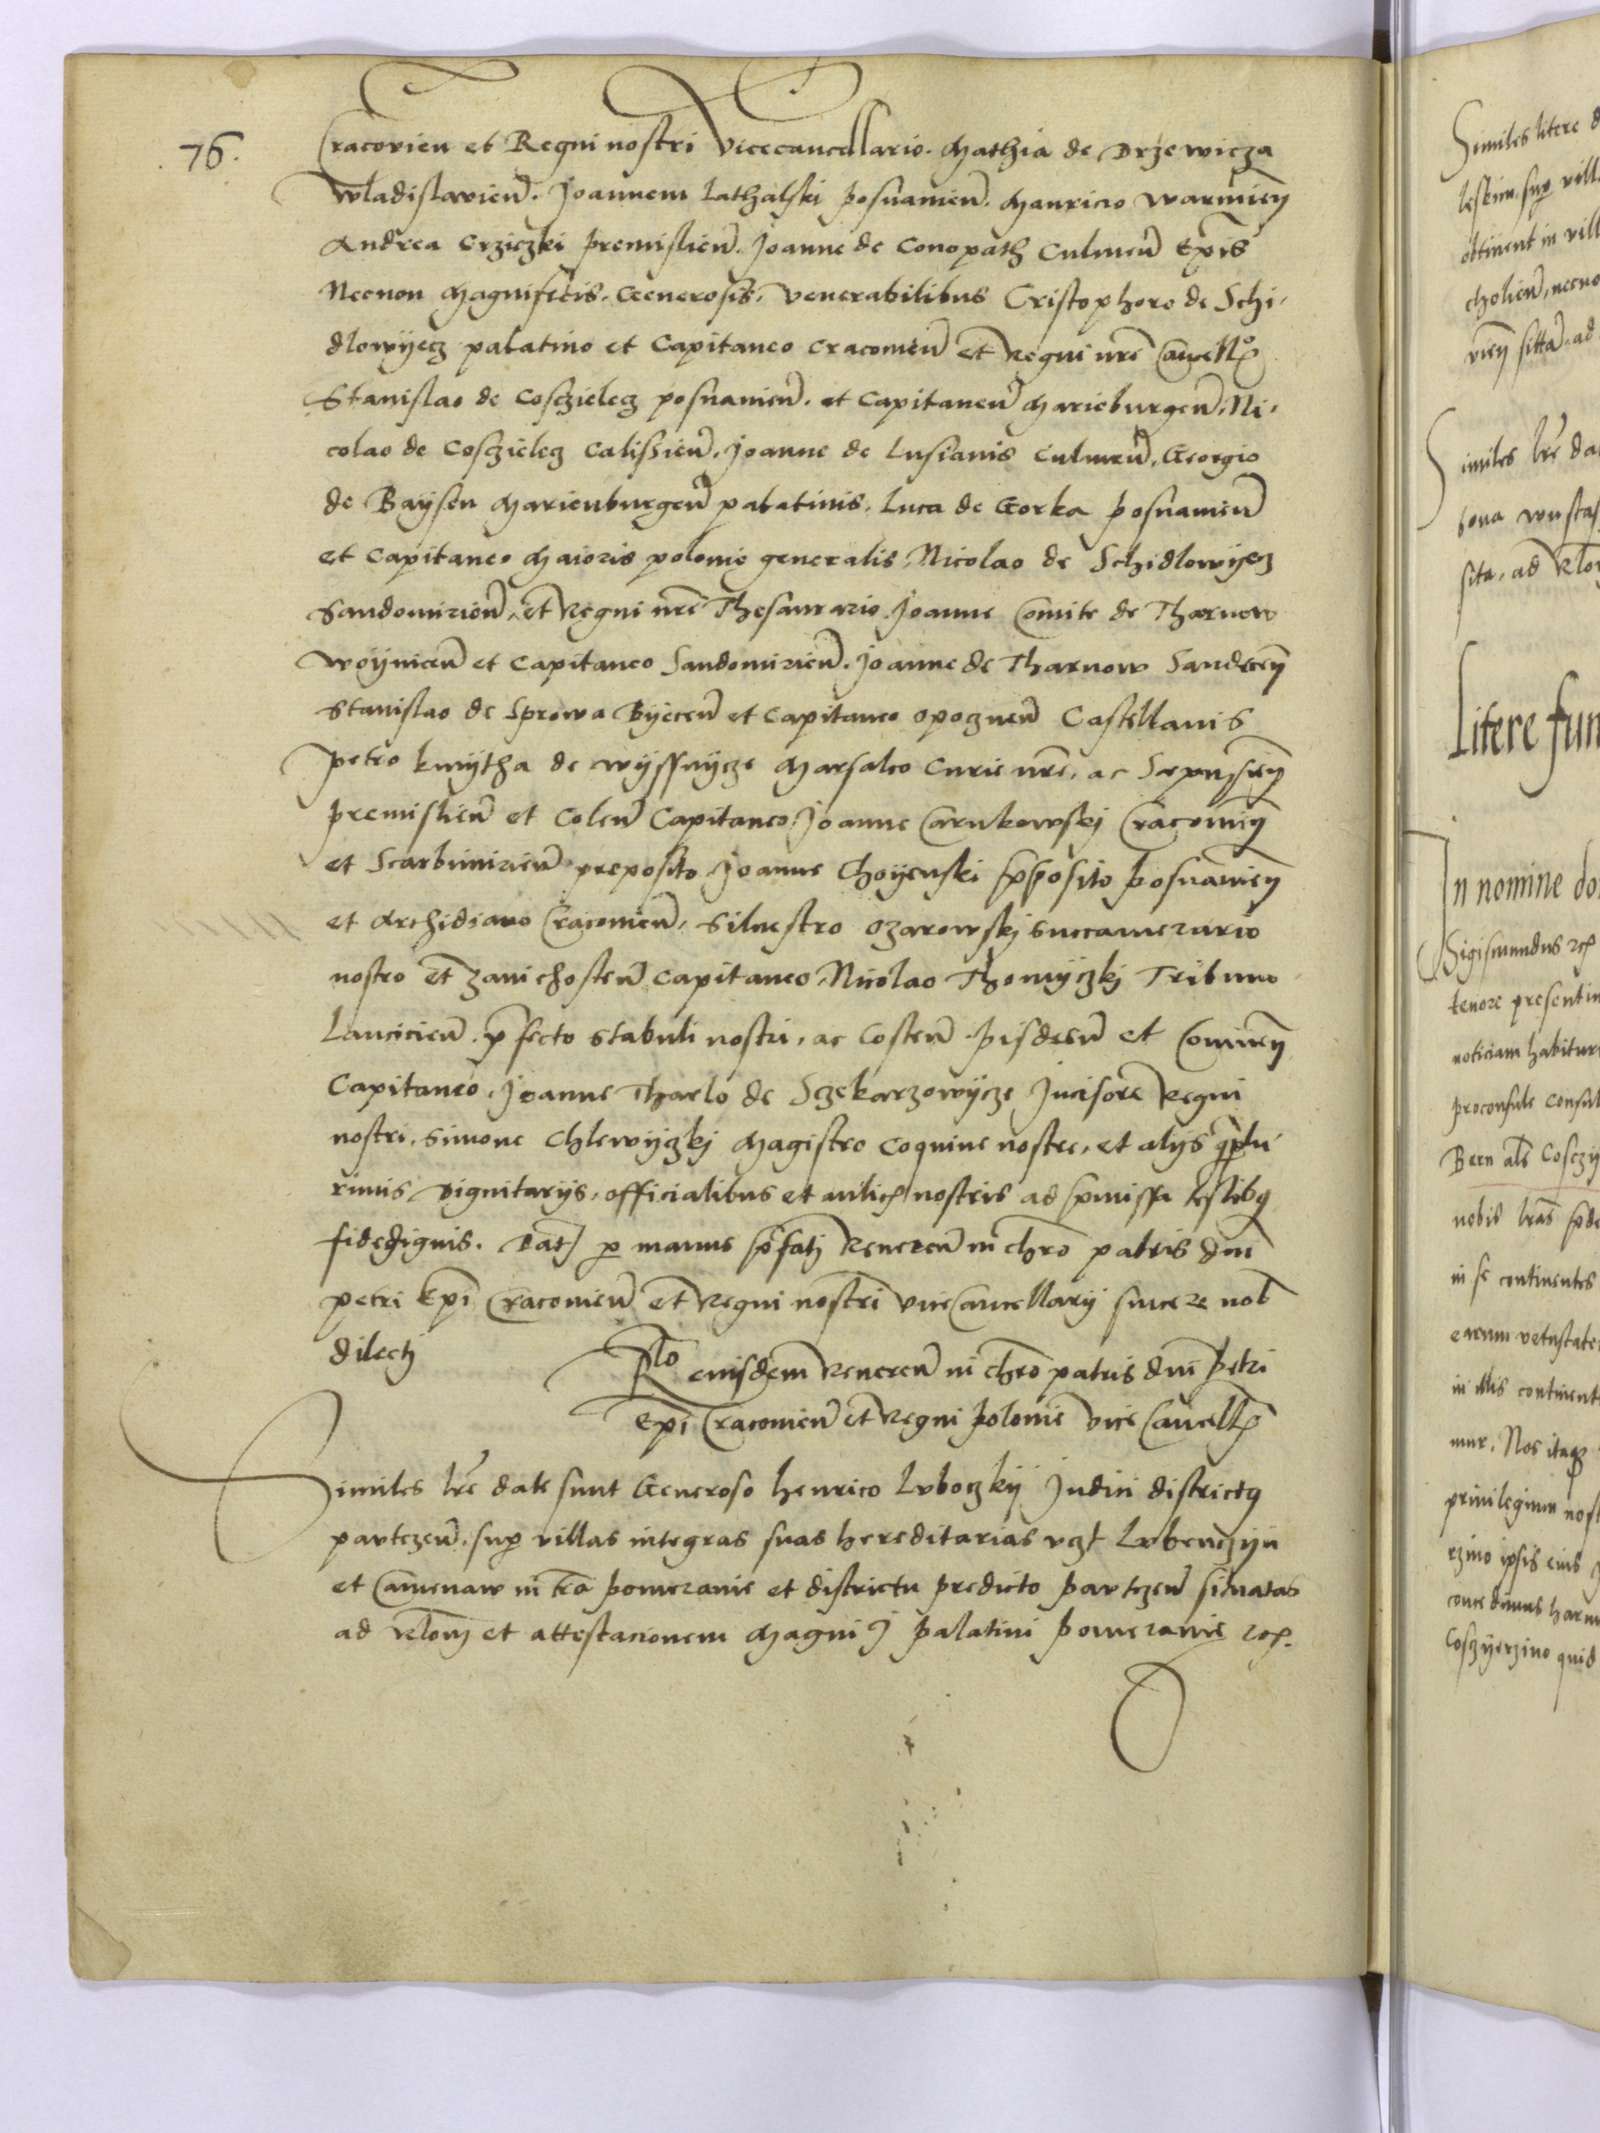 76.
Cracovien et Regni nostri Vicecancellario. Mathia de Drzewicza
Wladislavien̄. Joannem Lathalski posnanien̄. Mauricio Warmien̄
Andrea Crziczki premislien̄. Joanne de Conopath Culmen̄ Ep̄is
Necnon Magnificis. Generosis. Venerabilibus Cristophoro de Schi-
dlowyecz palatino et Capitaneo Cracovien̄ et Regni nr̄e Cancell̄o
Stanislao de Cosczielecz posnanien̄. et Capitaneū Marieburgen̄. Ni-
colao de Cosczielecz Calissien̄. Joanne de Lusianis Culmen̄. Georgio
de Baysen Marienburgen̄ palatinis. Luca de Gorka posnanien̄
et Capitaneo Maioris polonie generalis. Nicolao de Schidlowyecz
Sandomirien̄. et Regni nr̄e Thesaurario. Joanne Comite de Tharnow
Woynicen̄ et Capitaneo Sandomirien̄. Joanne de Tharnow Sandecen̄
Stanislao de Sprowa Byecen̄ et Capitaneo opocznen̄ Castellanis
petro kmytha de Wyssnycze Marsalco Curie nr̄e. ac Scepusien̄
premislien̄ et Colen̄ Capitaneo. Joanne Carnkowskj Cracovien̄
et Scarbimirien̄ preposito. Joanne Choyenski p̄posito posnanien̄
et Archidiano Cracovien̄. Silvestro Ozarowskj Succamerario
nostro et Zavichosten̄ Capitaneo. Nicolao Thomyczkj Tribuno
Lancicien̄. p̄fecto stabuli nostri. ac Costen̄. pisdren̄ et Coninen̄
Capitaneo. Joanne Tharlo de Sczekarzowycze Jncisore Regni
nostri. Simone Chlewyczkj Magistro Coquine nostre. et alijs q̄plu
rimis Dignitarijs. officialibus et aulicis nostris ad p̄missa testibꝯ
fidedignis. Dat̄ p manus p̄fatj Reveren̄ in chr̄o patris dn̄i
petri Ep̄i Cracovien̄ et Regni nostri viceCancellarij sincere nob̄
dilectj
Rl̄o eiusdem Reveren̄ in chr̄o patris dn̄i petri
Ep̄i Cracovien̄ et Regni polonie Vice Cancell̄
Similes lr̄e date sunt Generoso henrico Lvboczkij Judici districtꝯ
pavtczen̄. sup villas integras suas hereditarias vczt Lvbenczyn
et Camenaw in tr̄a pomeranie et districtu predicto pavtczen̄ situatas
ad Rl̄om et attestacionem Magni J palatini pomeranie

Similes litere
sup vill
obtinent in vill
cholien̄. necno
sitta. ad
Similes lr̄e da
bona
sita. ad
Litere fun
In nomine do
Sigismundus
tenore presentin
noticiam habitur
proconsule consul
Bern al̄s Cosczy
nobis lr̄as p̄de
in se continentes
earum vetustate
in illis continent
mur. Nos itaqꝫ
privilegium nost
rzino ipsis eius
concedimus harum
Cosczyerzino quid